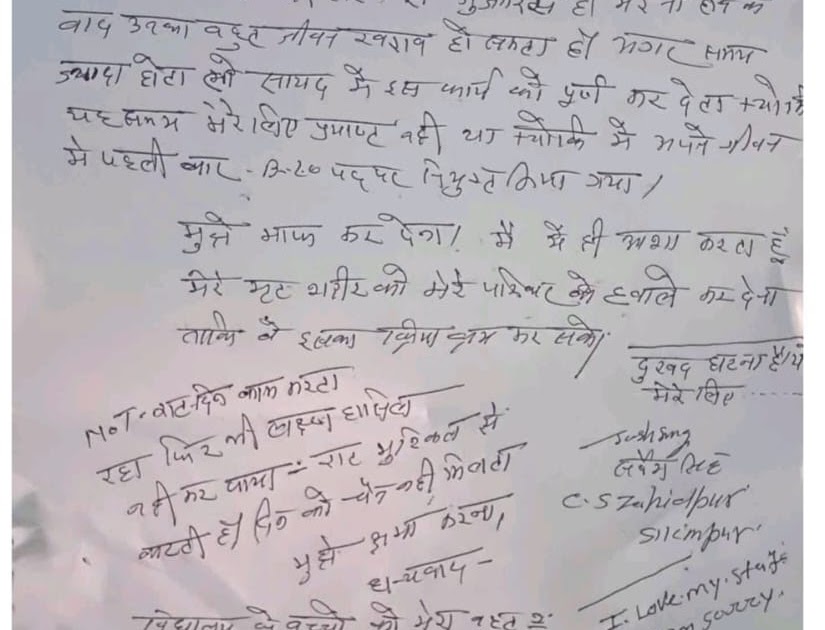 वाद उनका बहुत जीवन खराब हो सकता हो मगर समय
ज्यादा होता तो सायद मैं इस कार्य को पूर्ण कर देता क्योंकि
यह समय मेरे लिए प्रयाप्ट नही था क्योंकि मैं अपने जीवन
मे पहली बार - B.L.O पद पर नियुक्त किया गया।
मुझे माफ कर देना। मैं ये ही आशा करता हूँ
मेरे मृट शरीर को मेरे परिवार के हवाले कर देना
ताकि वे इसका क्रिया क्रम कर सके।
दुखद घटना है ये
मेरे लिए ......
NOT. राट-दिन काम करता
रहा फिर भी लक्ष्य हासिल
नही कर पाया = राट मुश्किल से
कटती है दिन को चैन नही मिलता
मुझे क्षमा करना,
धन्यवाद -
सिंह
C.S Zahidpur
Sikimpur.
I. Love. my. stage
sorry.
विद्यालय के बच्चो को मेरा बहुत